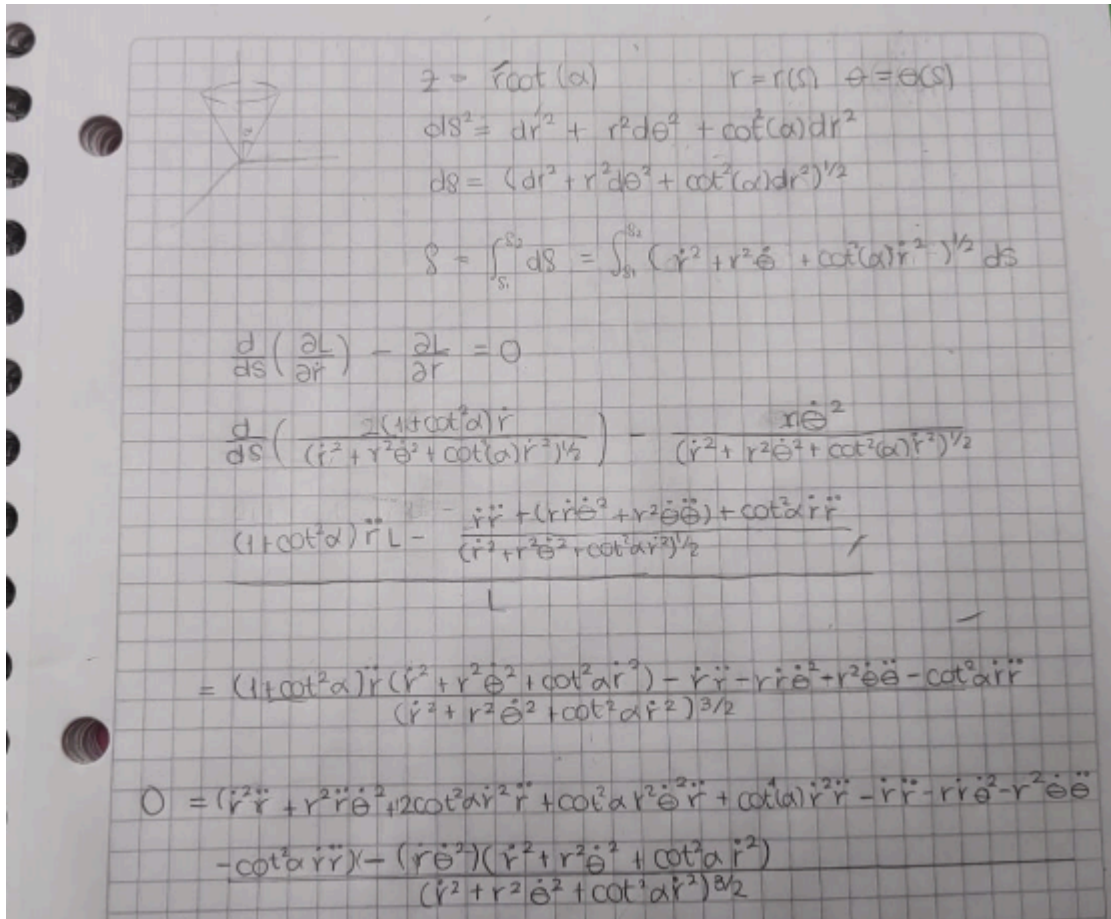 z = r cot(α) r = r(s) θ = θ(s)
ds² = dr² + r²dθ² + cot²(α)dr²
ds = (dr² + r²dθ² + cot²(α)dr²)^1/2
S = ∫_{S₁}^{S₂} ds = ∫_{S₁}^{S₂} (ṙ² + r²θ̇ + cot²(α)ṙ²)^1/2 ds
d/ds (∂L/∂ṙ) − ∂L/∂r = 0
d/ds (2(1+cot²α)ṙ / (ṙ² + r²θ̇² + cot²(α)ṙ²)^1/2) − rθ̇² / (ṙ² + r²θ̇² + cot²(α)ṙ²)^1/2
(1+cot²α) r̈ L − ṙr̈ + (rṙθ̇² + r²θ̇θ̈) + cot²α ṙr̈ / (ṙ² + r²θ̇² + cot²αṙ²)^1/2
L
= (1+cot²α)r̈(ṙ² + r²θ̇² + cot²αṙ²) − ṙr̈ − rṙθ̇² + r²θ̇θ̈ − cot²αṙr̈ / (ṙ² + r²θ̇² + cot²αṙ²)^3/2
0 = (ṙ²r̈ + r²r̈θ̇² + 2cot²αṙ²r̈ + cot²αr²θ̇²r̈ + cot⁴(α)ṙ²r̈ − ṙr̈ − rṙθ̇² − r²θ̇θ̈
−cot²αṙr̈) − (rθ̇²)(ṙ² + r²θ̇² + cot²αṙ²) / (ṙ² + r²θ̇² + cot²αṙ²)^3/2